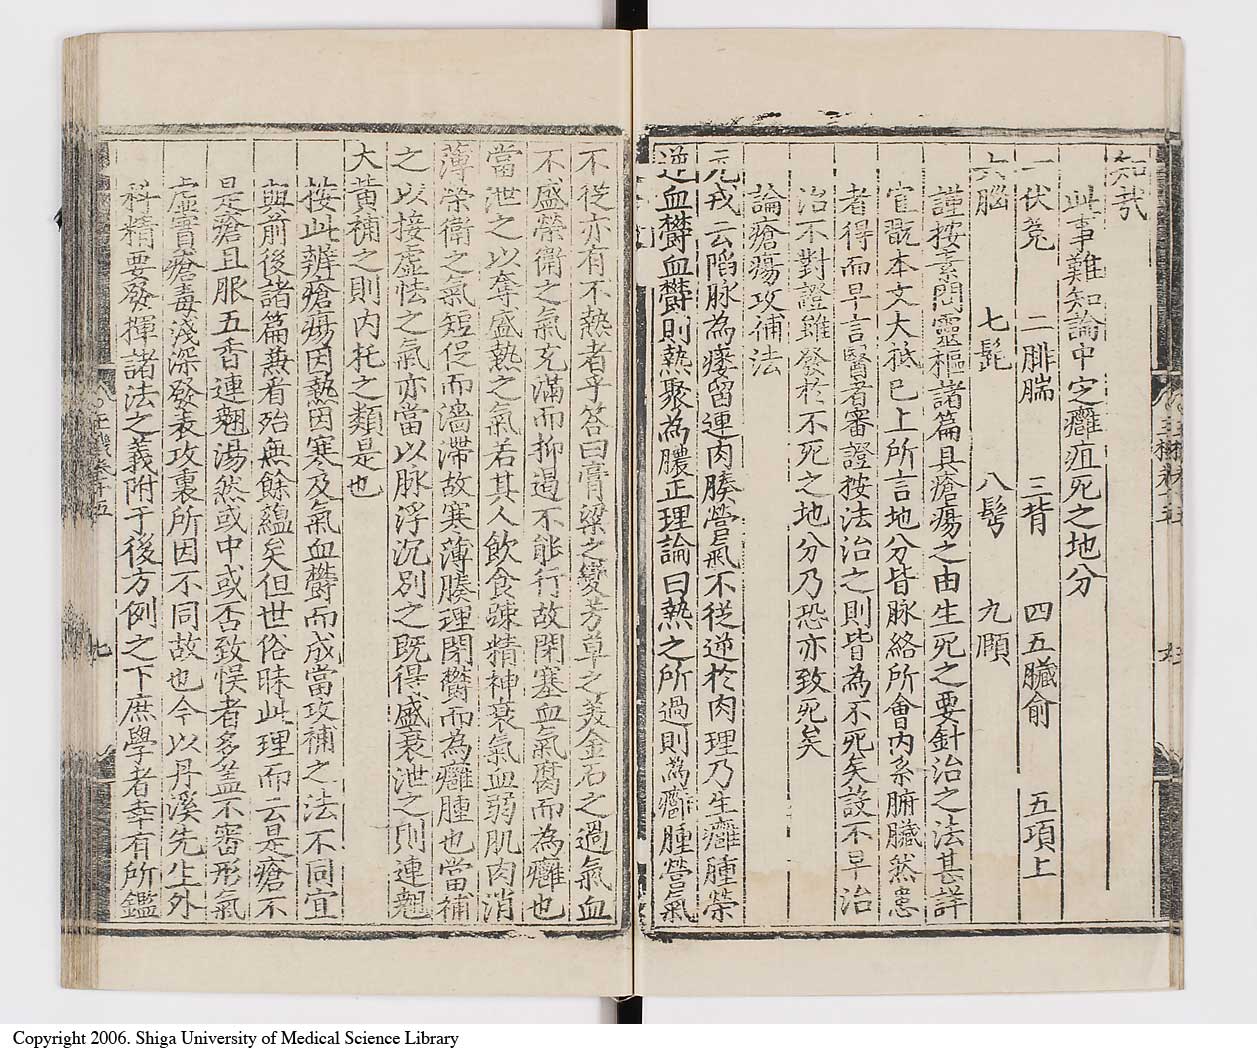 知哉
此事難知論中定癰疽死之地分
一伏兔 二腓腨 三背 四五臟俞 五項上
六腦 七髭 八鬢 九頤
謹按素問靈樞諸篇具瘡瘍之由生死之要針治之法甚詳
宜翫本文大抵已上所言地分皆脉絡所會內系腑臟然患
者得而早言醫者審證按法治之則皆為不死矣設不早治
治不對證雖發於不死之地分乃恐亦致死矣
論瘡瘍攻補法
元戎云陷脉為瘻留連肉腠營氣不從逆於肉理乃生癰腫榮
逆血鬱血鬱則熱聚為膿正理論曰熱之所過則為癰腫營氣
不從亦有不熱者乎答曰膏粱之變芳草之美金石之過氣血
不盛榮衛之氣充滿而抑遏不能行故閉塞血氣腐而為癰也
當泄之以奪盛熱之氣若其人飲食踈精神衰氣血弱肌肉消
薄榮衛之氣短促而濇滯故寒薄腠理閉鬱而為癰腫也當補
之以接虛怯之氣亦當以脉浮沉別之既得盛衰泄之則連翹
大黃補之則內托之類是也
按此辨瘡瘍因熱因寒及氣血鬱而成當攻補之法不同宜
與前後諸篇兼看殆無餘蘊矣但世俗昧此理而云是瘡不
是瘡且服五香連翹湯然或中或否致悞者多盖不審形氣
虛實瘡毒淺深發表攻裏所因不同故也今以丹溪先生外
科精要發揮諸法之義附于後方例之下庶學者幸有所鑑
Copyright 2006. Shiga University of Medical Science Library